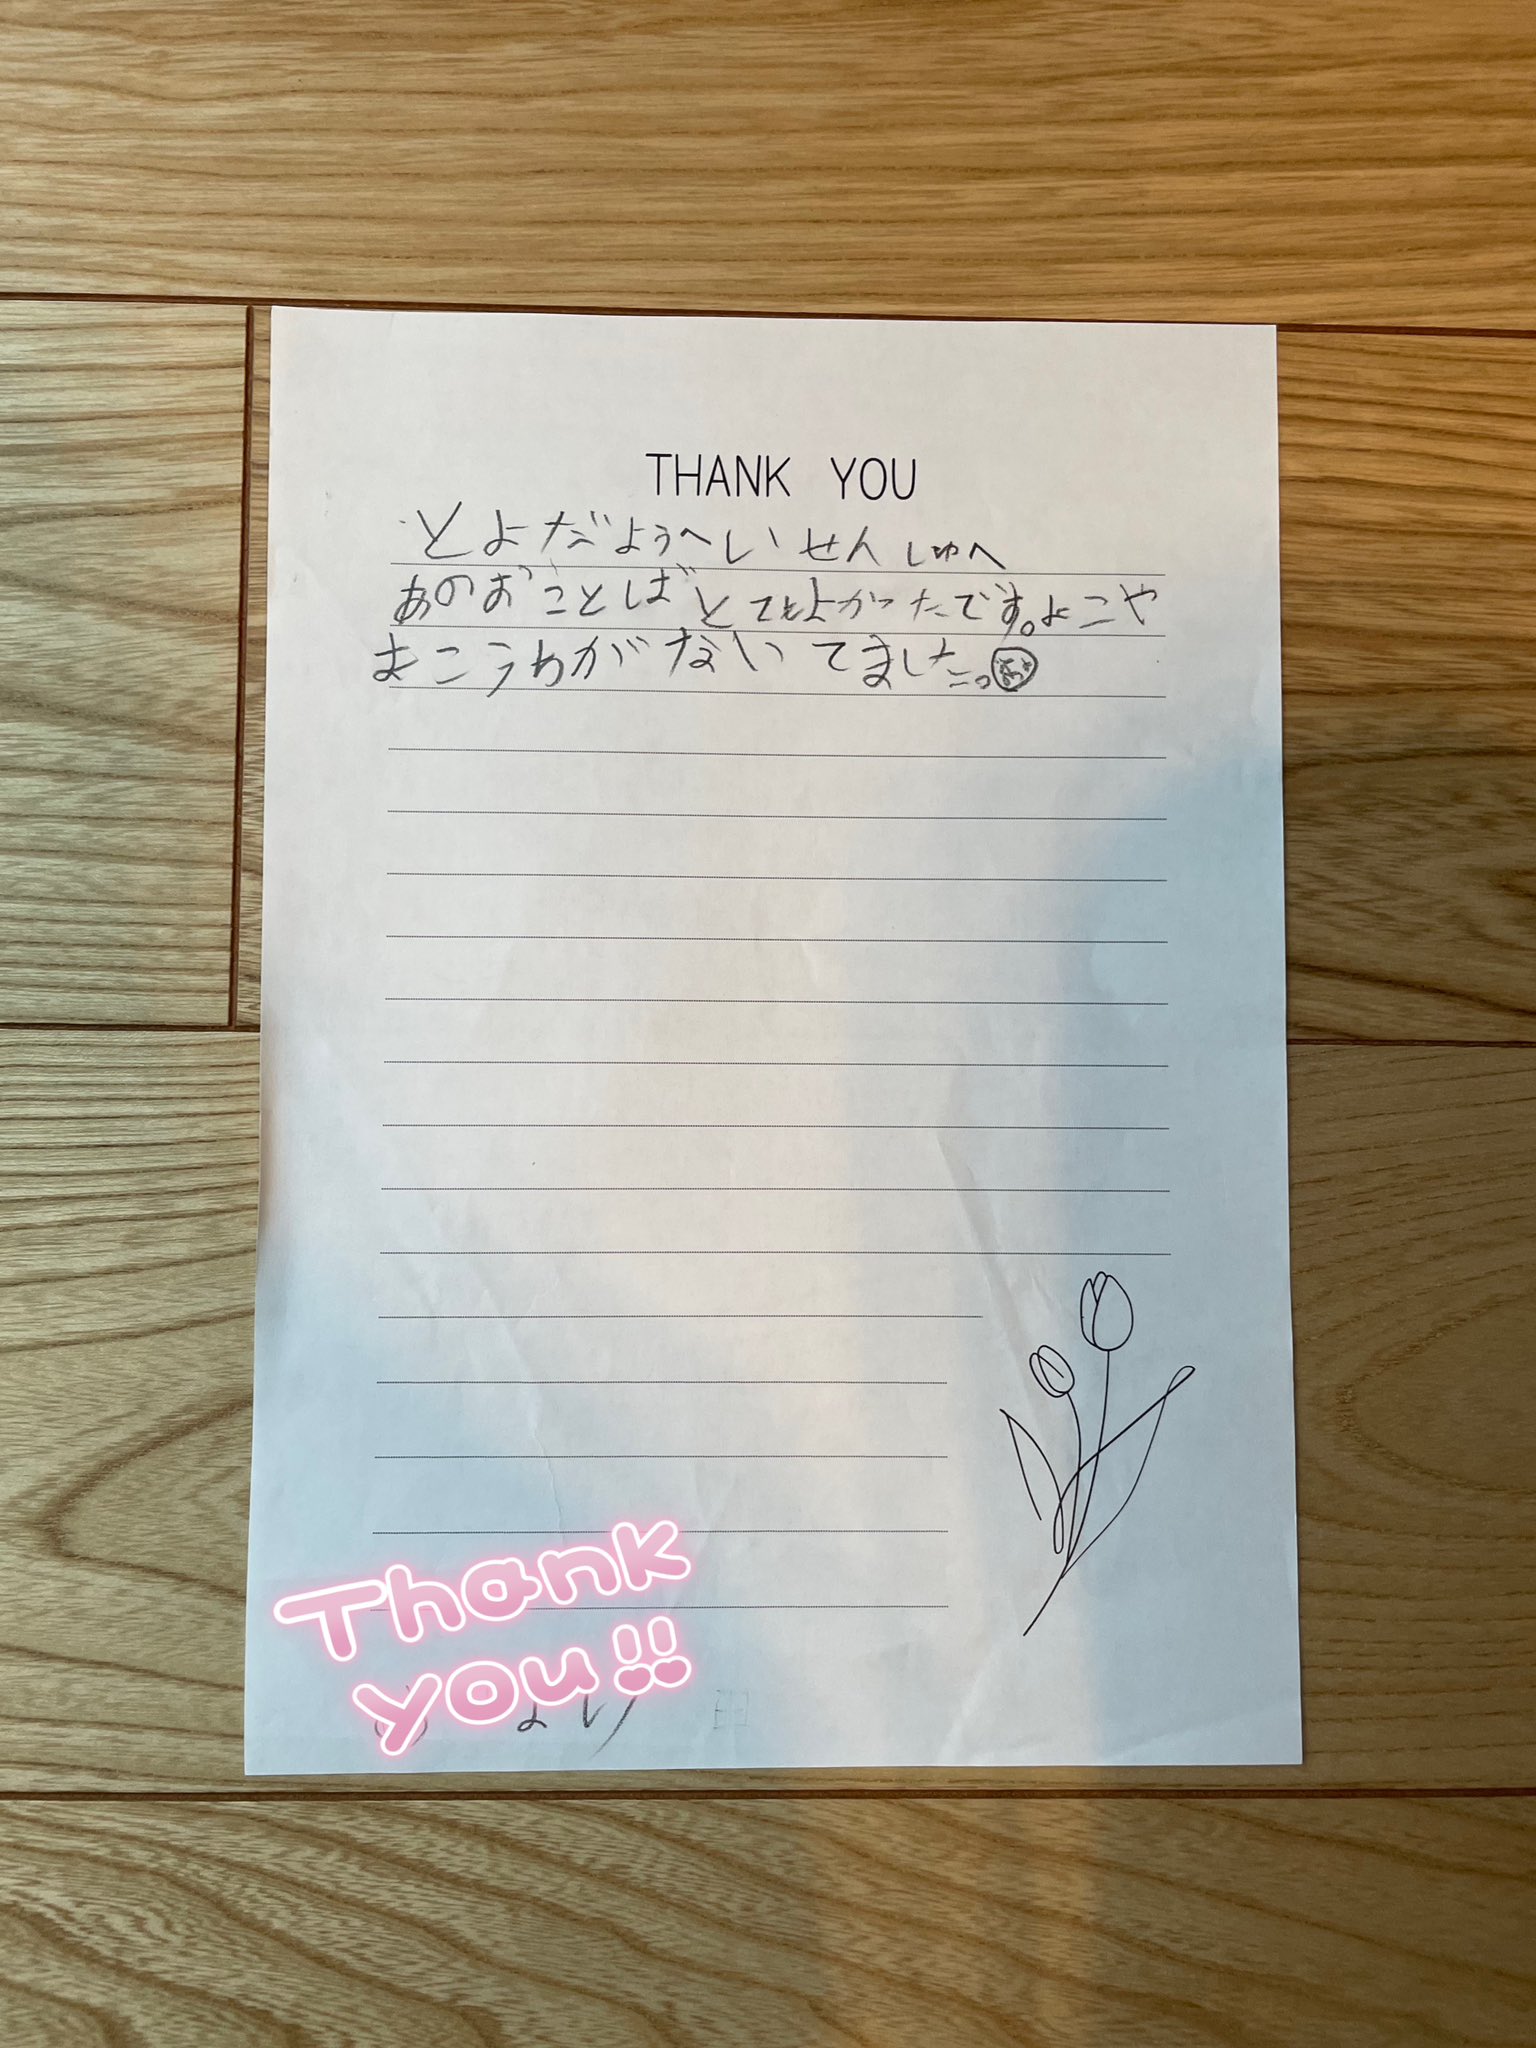 THANK YOU
とよだようへいせんしゅへ
あのおことばとてもよかったです。よこや
まこうわがないてました。
Thank
you!!
より